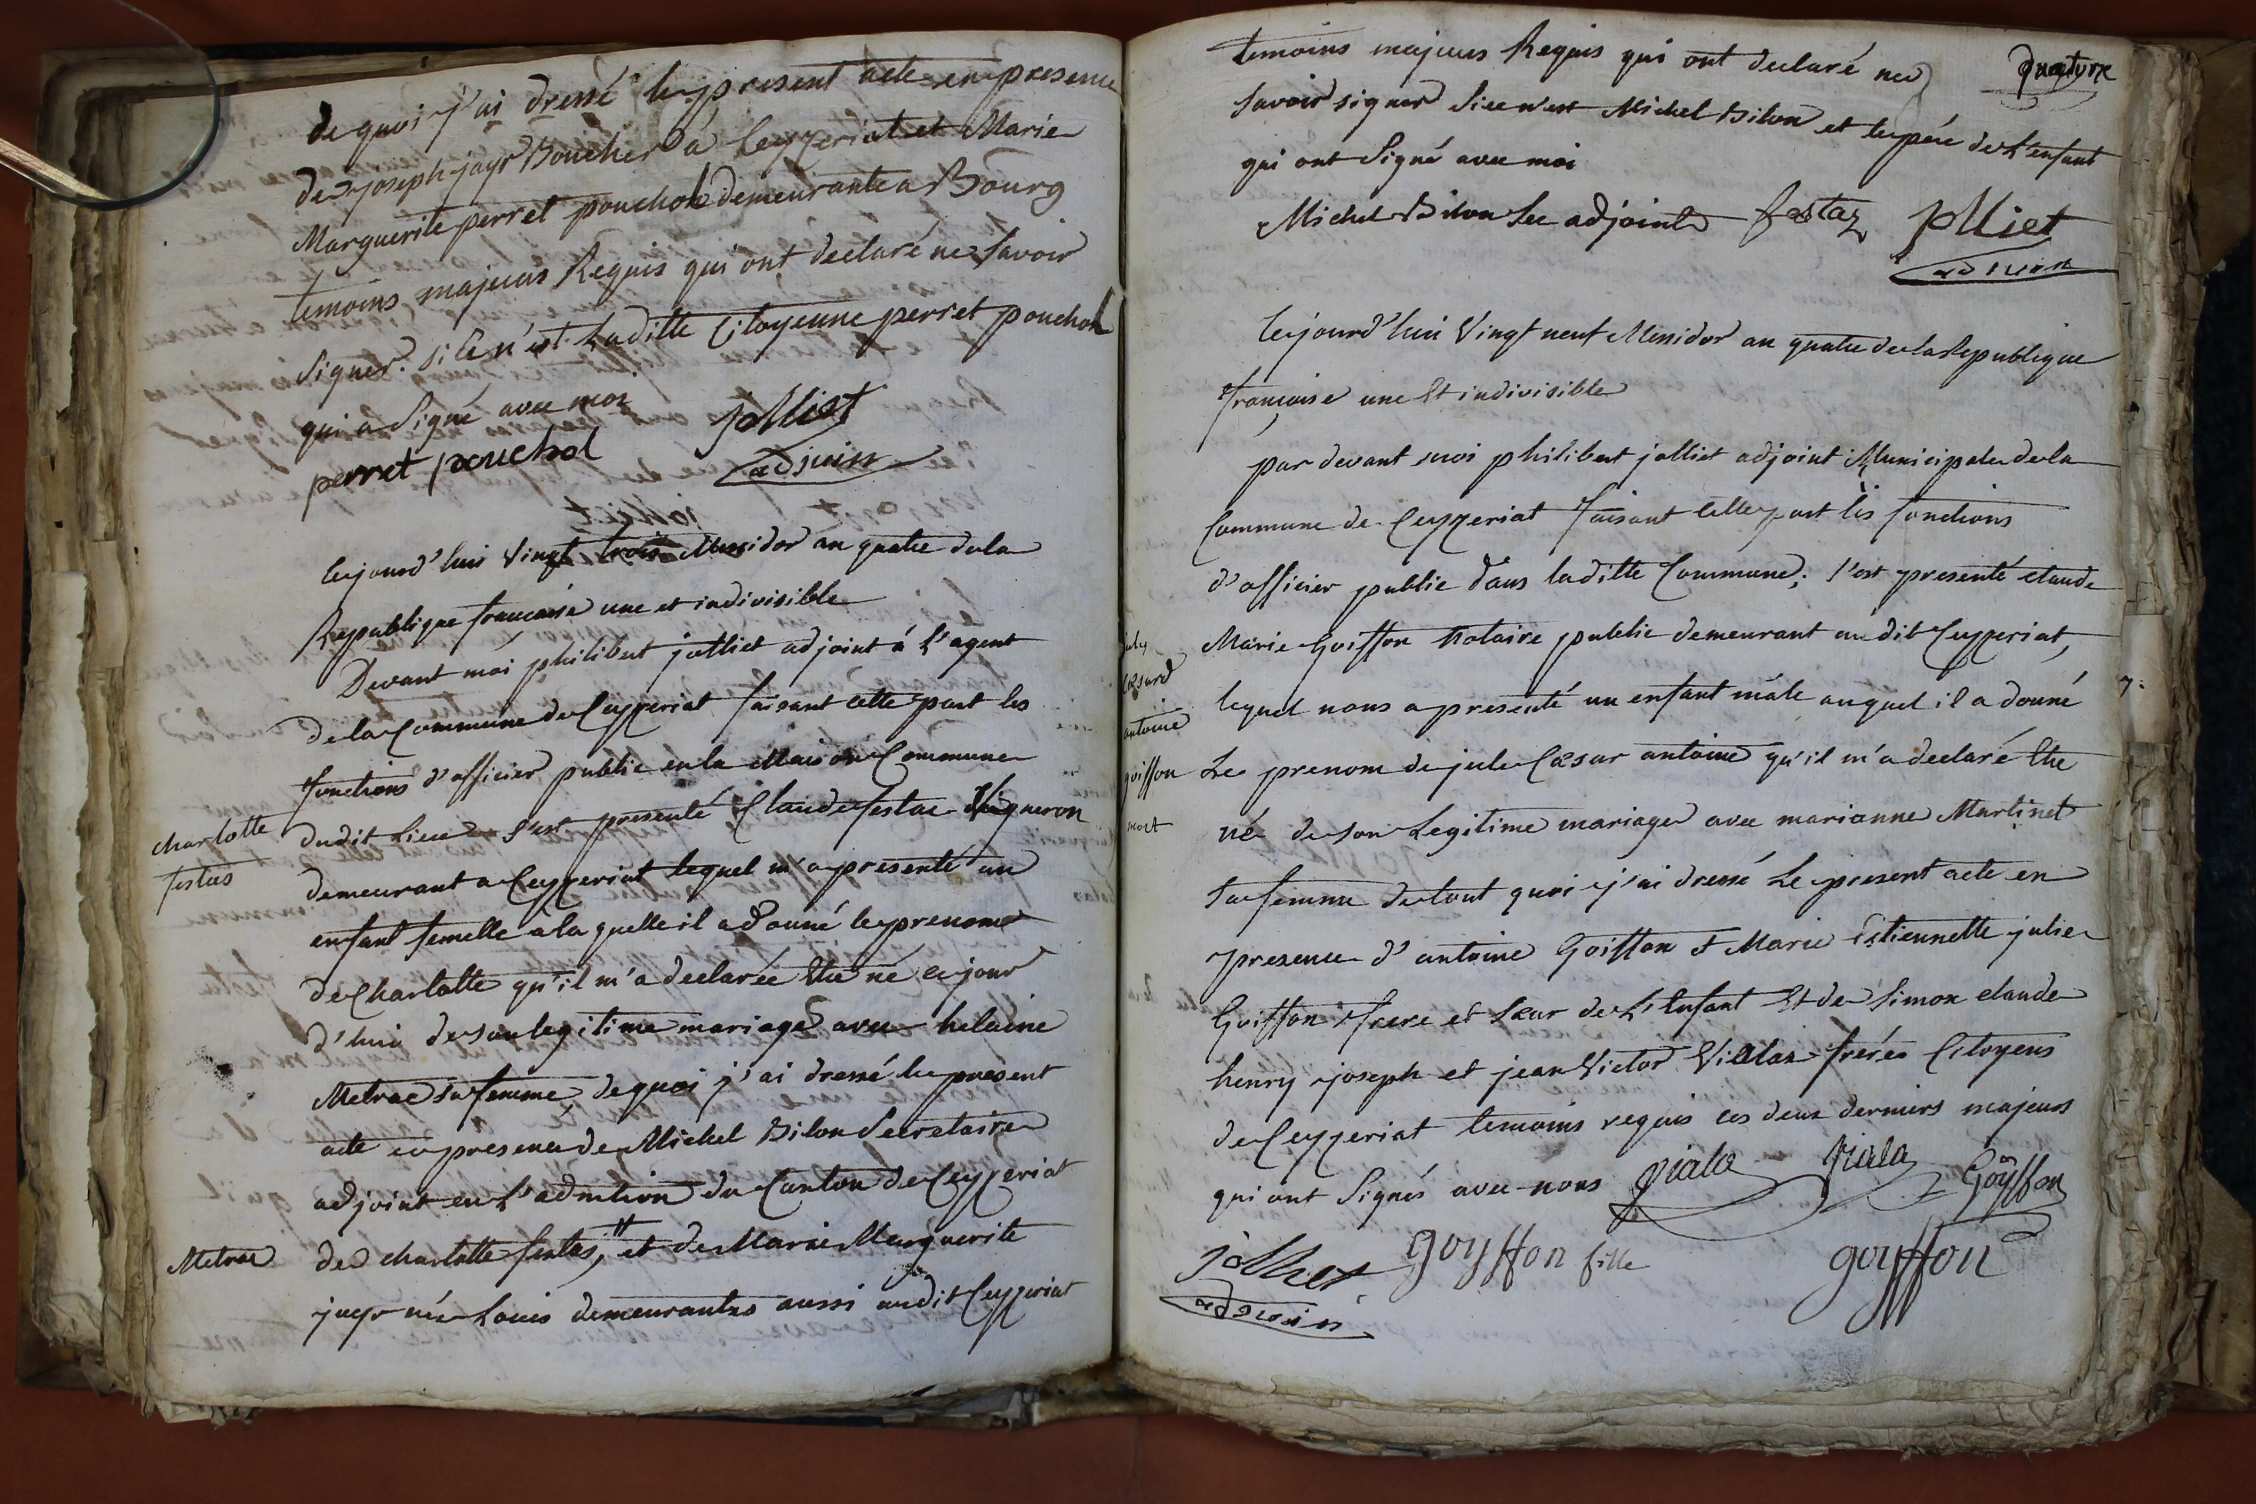 de quoi j'ai dressé le present acte en presence
de joseph jayr Boucher à Ceyzeriat et Marie
Marguerite perret pouchol demeurante a Bourg
temoins majeurs Requis qui ont declaré ne Savoir
Signer. si ce n'est Laditte Citoyenne perret pouchol
qui a Signé avec moi
perret pouchol jolliet
adjoin
Cejourd'hui Vingt trois Messidor an quatre de la
Republique francaise une et indivisible
Devant moi philibert jolliet adjoint à L'agent
de la Commune de Ceyzeriat faisant cette part les
fonctions d'officier public en la Maison Commune
dudit Lieu s'est presenté Claude festac Vigneron
charlotte
festas
demeurant a Ceyzeriat lequel m'a presenté un
enfant femelle a la quelle il a donné le prenom
de Charlotte qu'il m'a declarée Etre né ce jour
d'hui de son legitime mariage avec helaine
Metrae sa femme, de quoi j'ai dressé le present
acte en presence de Michel Bilon Secretaire
adjoint en L'admtion du Canton de Ceyzeriat
Metrae
de charlotte festas, et de Marie Marguerite
jayr née Louis demeurantes aussi audit Ceyzeriat
quatorze
temoins majeurs Requis qui ont declaré ne
savoir signer Si ce n'est Michel Bilon et le pére de L'enfant
qui ont Signé avec moi
Michel Bilon Sec adjoint festaz jolliet
adjoin
Cejourd'hui Vingt neuf Messidor an quatre de la Republique
française une Et indivisible
par devant moi philibert jolliet adjoint Municipal de la
Commune de Ceyzeriat faisant cette part les fonctions
d'officier public dans laditte Commune; s'est presenté claude
Marie Goiffon Notaire public demeurant au dit Ceyzeriat,
lequel nous a presenté un enfant mâle auquel il a donné
Le prenom de jule Cæsar antoine qu'il m'a declaré Etre
né de son Legitime mariage avec marianne Martinet
jules
Cæsard
antoine
goiffon
mort
Sa femme de tout quoi j'ai dressé Le present acte en
presence d'antoine Goiffon & Marie Estiennette julie
Goiffon frere et Sœur de L'Enfant Et de Simon claude
henry joseph et jean Victor Viallaz frerés Citoyens
de Ceyzeriat temoins requis ces deux derniers majeurs
qui ont Signés avec nous Viala Viala Goÿffon
jolliet goyffon fille goyffon
adjoin